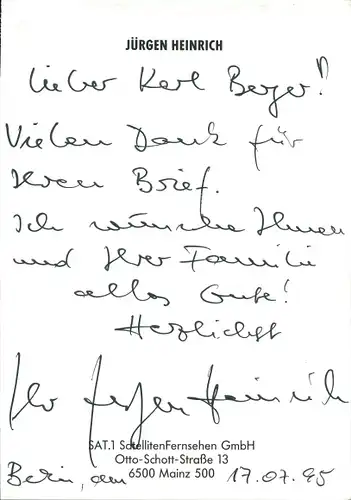 JÜRGEN HEINRICH
Lieber Karl Berger!
Vielen Dank für
Ihren Brief.
Ich wünsche Ihnen
und Ihrer Familie
alles Gute!
Herzlichst
Ihr Jürgen Heinrich
SAT.1 SatellitenFernsehen GmbH
Otto-Schott-Straße 13
6500 Mainz 500
Berlin, am 17.07.95